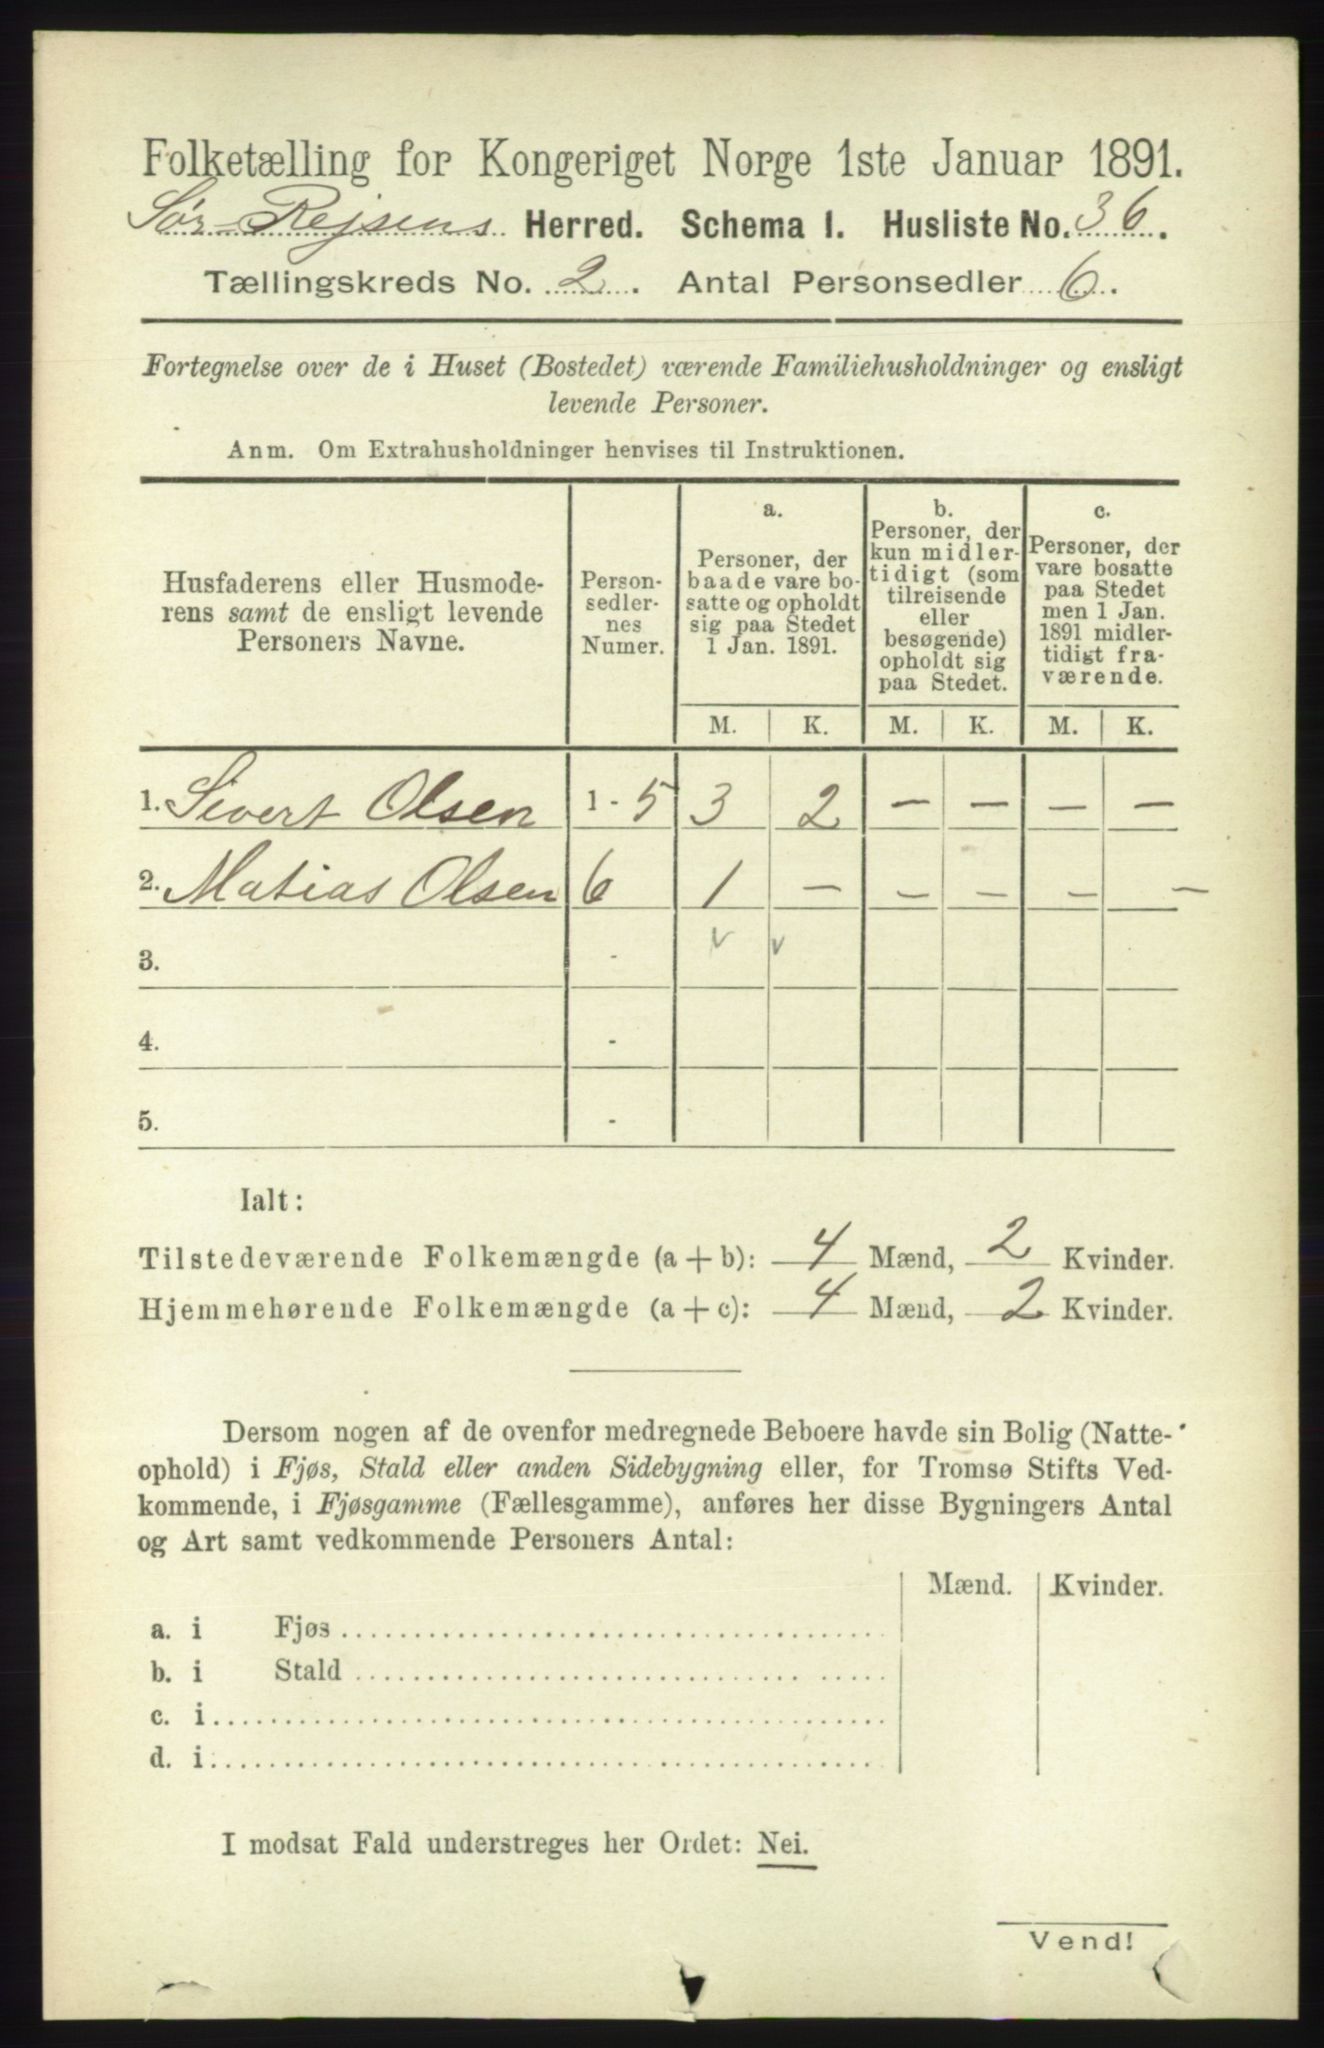 Folketælling for Kongeriget Norge 1ste Januar 1891.
Sør-Rejsens Herred. Schema I. Husliste No. 36.
Tællingskreds No. 2. Antal Personsedler 6.
Fortegnelse over de i Huset (Bostedet) værende Familiehusholdninger og ensligt
levende Personer.
Anm. Om Extrahusholdninger henvises til Instruktionen.
Husfaderens eller Husmode-
rens samt de ensligt levende
Personers Navne.
Person-
sedler-
nes
Numer.
a.
Personer, der
baade vare bo-
satte og opholdt
sig paa Stedet
1 Jan. 1891.
b.
Personer, der
kun midler-
tidigt (som
tilreisende
eller
besøgende)
opholdt sig
paa Stedet.
c.
Personer, der
vare bosatte
paa Stedet
men 1 Jan.
1891 midler-
tidigt fra-
værende.
M. K. M. K. M. K.
1. Sivert Olsen 1 - 5 3 2 — — — —
2. Matias Olsen 6 1 — — — — —
3. - v v
4. -
5. -
Ialt:
Tilstedeværende Folkemængde (a + b): 4 Mænd, 2 Kvinder.
Hjemmehørende Folkemængde (a + c): 4 Mænd, 2 Kvinder.
Dersom nogen af de ovenfor medregnede Beboere havde sin Bolig (Natte-
ophold) i Fjøs, Stald eller anden Sidebygning eller, for Tromsø Stifts Ved-
kommende, i Fjøsgamme (Fællesgamme), anføres her disse Bygningers Antal
og Art samt vedkommende Personers Antal:
Mænd. Kvinder.
a. i Fjøs
b. i Stald
c. i
d. i
I modsat Fald understreges her Ordet: Nei.
Vend!